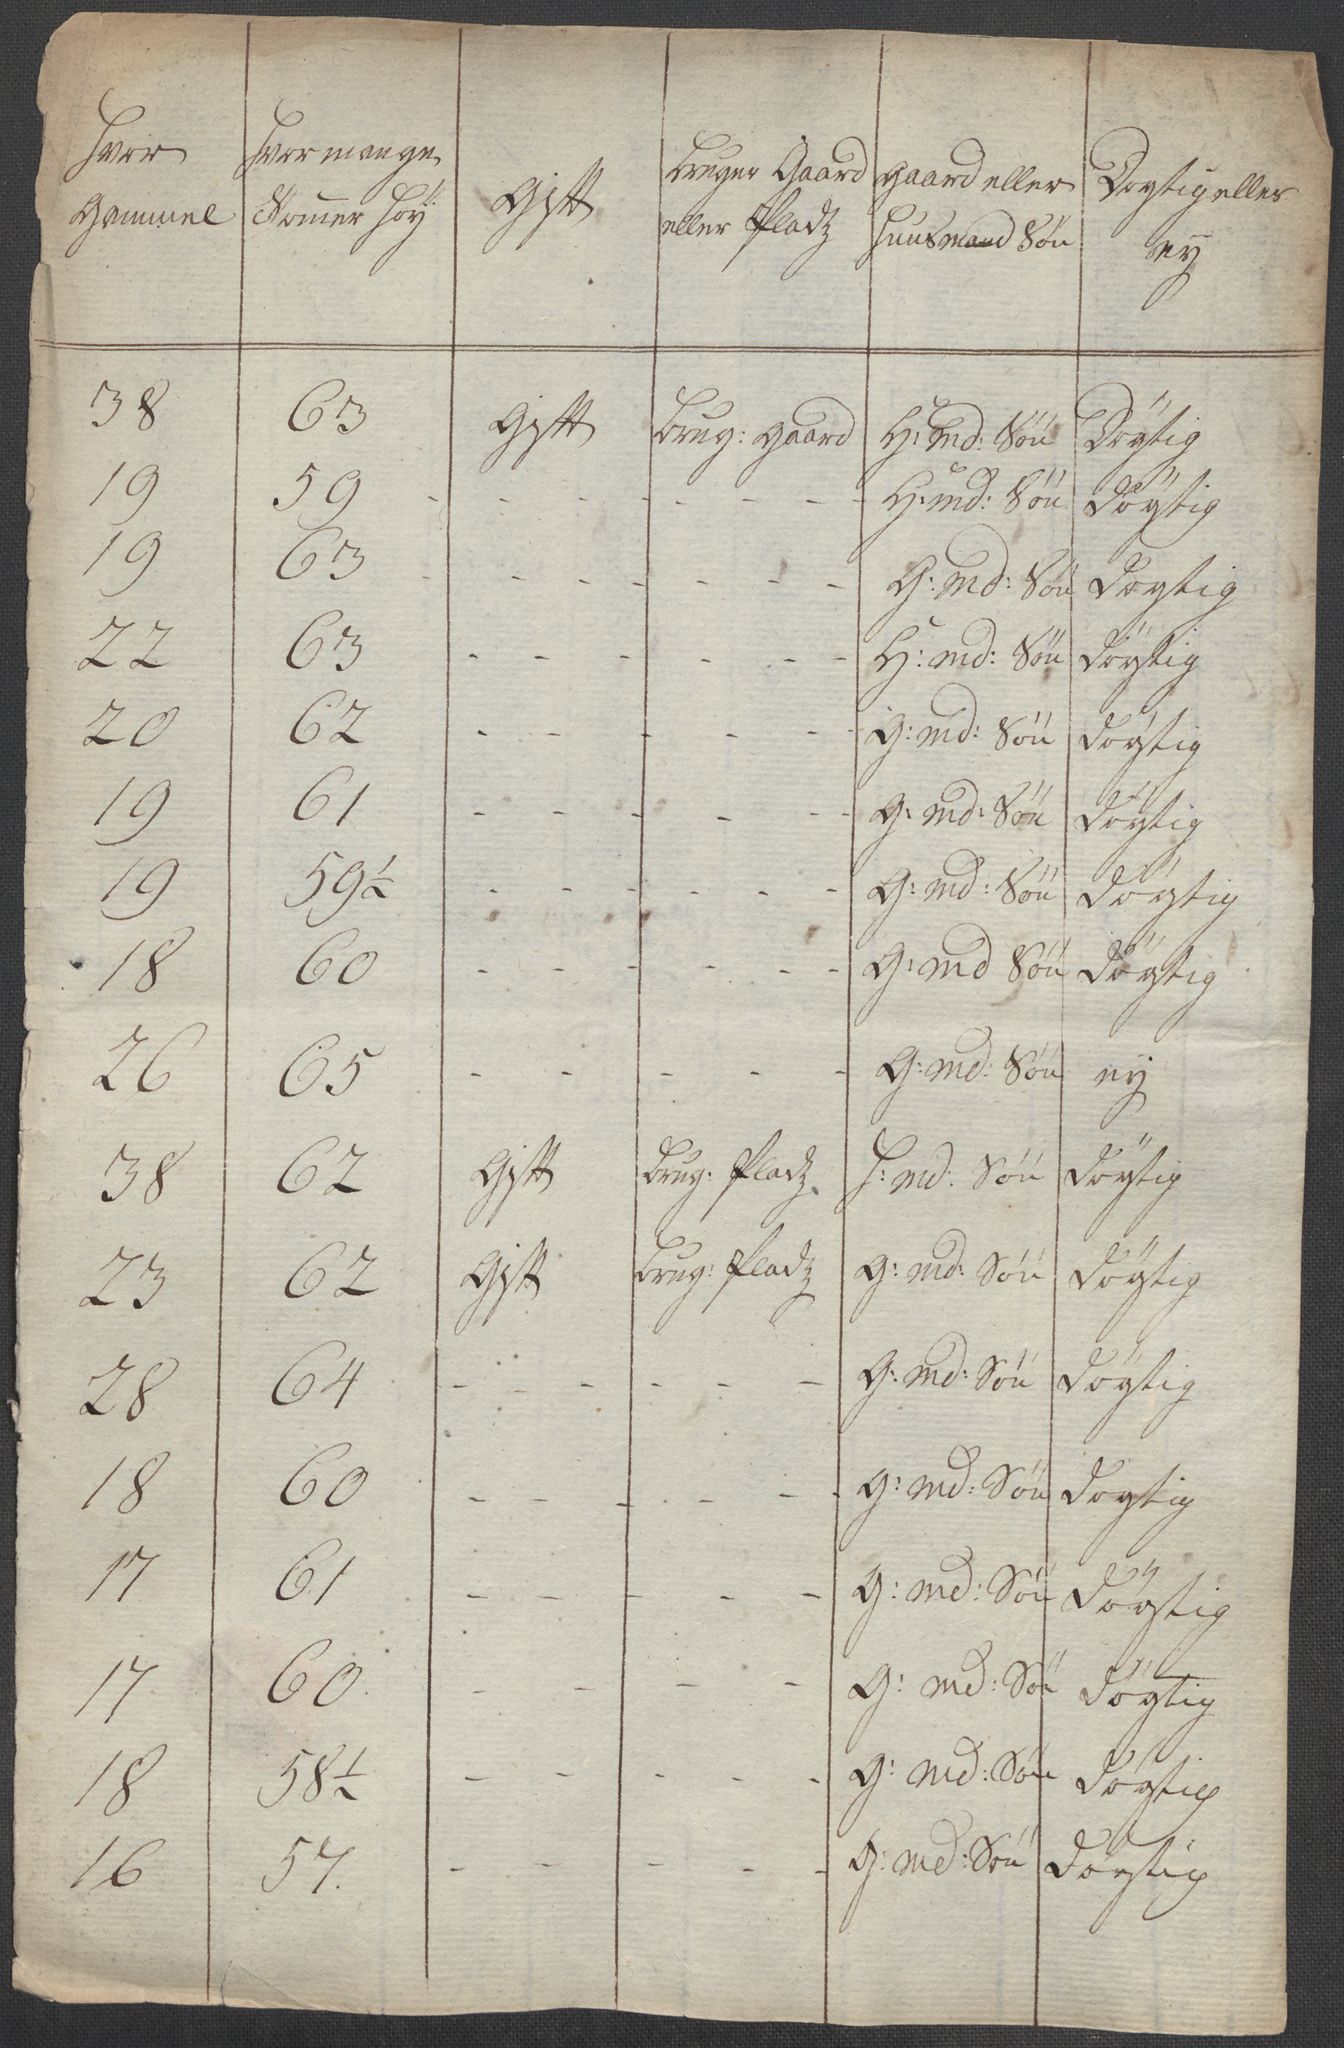 Hvor Gammel | Hvor mange Tomer Höy | Gift | bruger Gaard eller Pladz | gaard eller Huusmand Sön | Dögtig eller ey
38 | 63 | Gift | brug: gaard | H: md: Sön | Dögtig
19 | 59 | - - - | - - - | H: md: Sön | dögtig
19 | 63 | - - - | - - - | G: md: Sön | dögtig
22 | 63 | - - - | - - - | H: md: Sön | dögtig
20 | 62 | - - - | - - | G: md: Sön | dögtig
19 | 61 | - - - | - - | G: md: Sön | dögtig
19 | 59½ | - - - | - - | G: md: Sön | dögtig
18 | 60 | - - - | - - - | G: md Sön | dögtig
26 | 65 | - - | - - - | G: md: Sön | ey
38 | 62 | Gift | brug: Pladz | H: md: Sön | dögtig
23 | 62 | Gift | brug: Pladz | G: md: Sön | dögtig
28 | 64 | - - - | - - - | G: md: Sön | dögtig
18 | 60 | - - - | - - - | G: md: Sön | dogtig
17 | 61 | - - - | - - - | G: md: Sön | dögtig
17 | 60 | - - - | - - | G: md: Sön | dögtig
18 | 58½ | - - - | - - - | G: md: Sön | dögtig
16 | 57. | - - - | - - - | G: md: Sön | dögtig